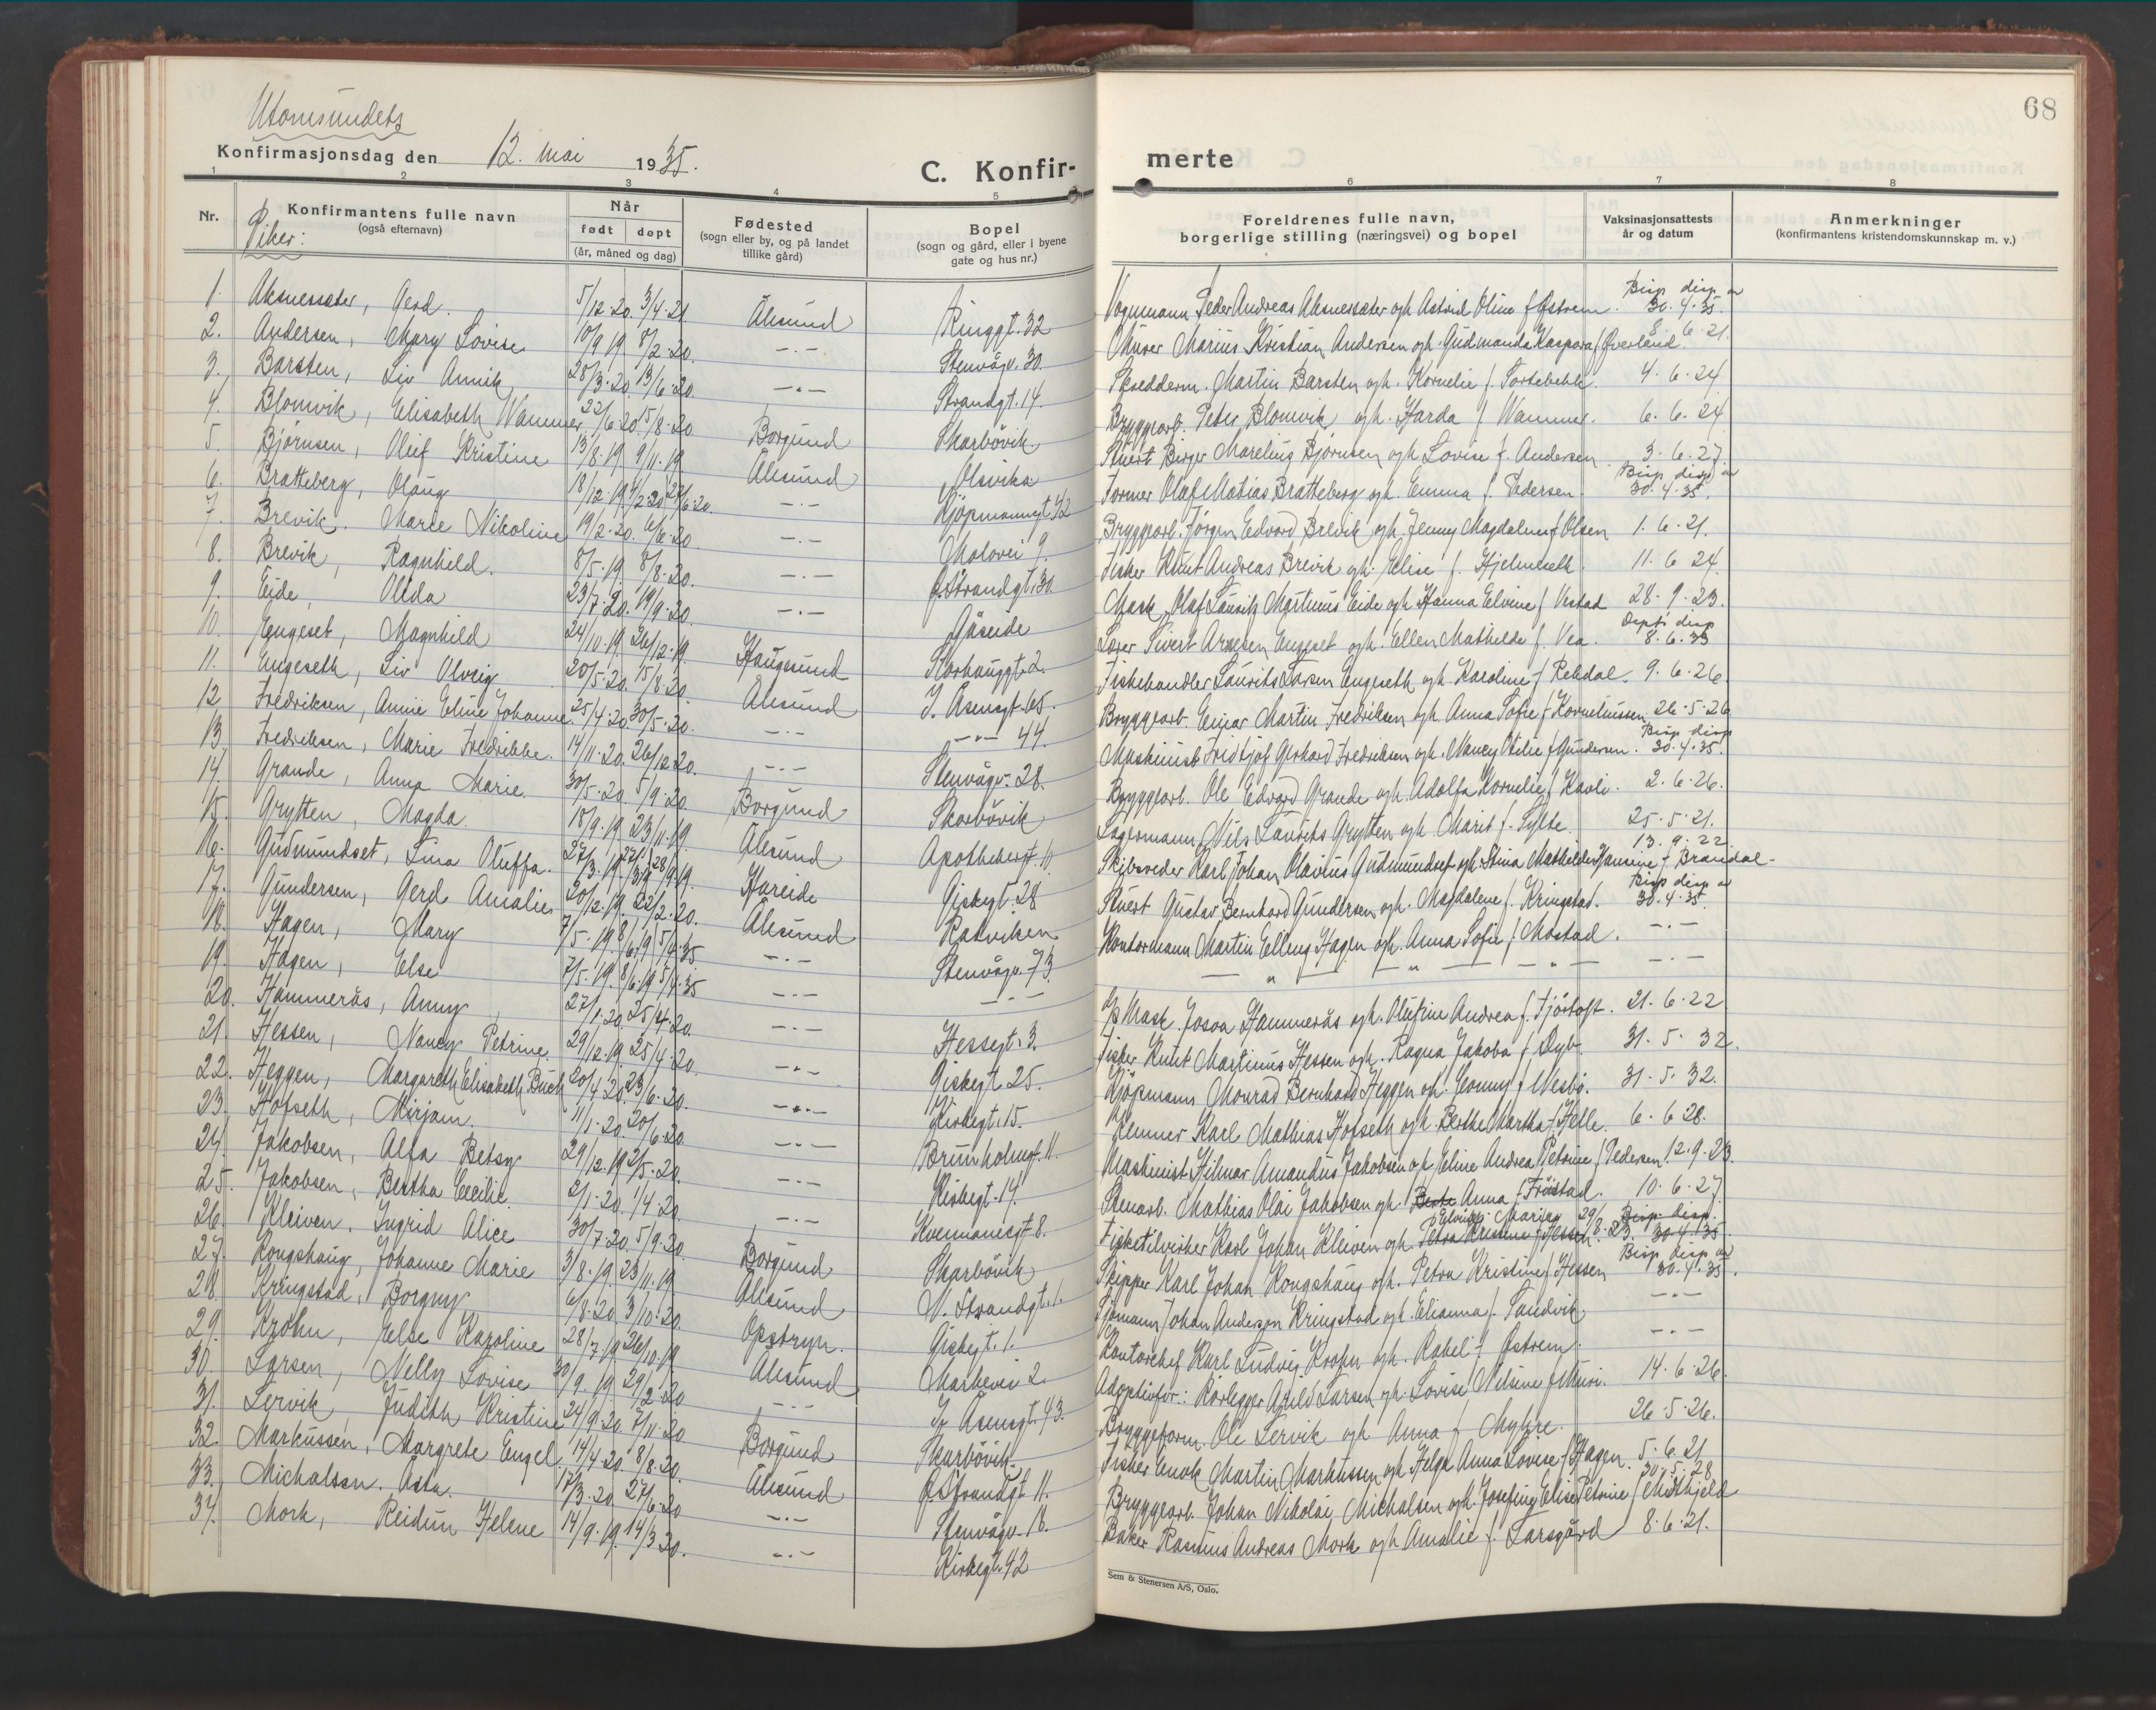 68
Utomsundets
Konfirmasjonsdag den 12. mai 1935.
C. Konfir- merte
1 2 3 4 5 6 7 8
Nr. Konfirmantens fulle navn (også efternavn) Når født døpt (år, måned og dag) Fødested (sogn eller by, og på landet tillike gård) Bopel (sogn og gård, eller i byene gate og hus nr.) Foreldrenes fulle navn, borgerlige stilling (næringsvei) og bopel Vaksinasjonsattests år og datum Anmerkninger (konfirmantens kristendomskunnskap m. v.)
Piker:
1. Aknessæter, Gerd. 5/12.20. 3/4.21. Ålesund Ringgt. 32 Vognmann Peder Andreas Aknessæter og h. Astrid Oline f. Østrem. Bisp. disp. av 30.4.35.
2. Andersen, Mary Lovise 10/9 19. 8/2.20. -.- Stenvågv. 30. Murer Marius Kristian Andersen og h. Gudmunda Kaspara f. Øverland. 8.6.21.
3. Barsten, Liv Annik, 28/3.20. 13/6.20. -.- Strandgt. 14. Skredderm. Martin Barsten og h. Kornelie f. 4.6.24
4. Blomvik, Elisabeth Wammer 22/6.20. 15/8.20. Borgund Skarbövik Bryggearb. Peter Blomvik og h. Harda f. Wammer. 6.6.24
5. Björnsen, Oleif Kristine 13/8.19. 9/11.19 Ålesund Olsvika Stuert Birger Marelius Björnsen og h. Lovise f. Andersen. 3.6.27.
6. Bratteberg, Olaug 18/12.19. 27/6.20. -.- Kjöpmannsgt 42 Former Olaf Matias Bratteberg og h. Emma f. Pedersen. Bisp. disp. av 30.4.35.
7. Brevik. Marie Nikoline 19/2.20. 6/6.20. -.- Molovei 9. Bryggearb. Jörgen Edvard Brevik og h. Jenny Magdalene f. Olsen 1.6.21.
8. Brevik, Ragnhild. 8/5.19. 8/8.20. -.- Ø. Strandgt. 30. Fisker Knut Andreas Brevik og h. Elise f. Hjelmeseth. 11.6.24.
9. Eide, Olida 23/7.20. 19/9.20. -.- Gåseide Mask. Olaf Laurits Martinus Eide og h. Hanna Elvine f. Vestad 28.9.23.
10. Engeset, Magnhild 24/10.19. 26/12.19. Haugesund Storhauggt. 2. Lærer Sivert Arnesen Engeset og h. Ellen Mathilde f. Vea. Dept. disp. 8.6.33
11. Engeseth, Liv Olveig 20/5.20. 15/8.20. Ålesund I. Åsensgt. 65. Fiskehandler Laurits Larsen Engeseth og h. Karoline f. Rekdal. 9.6.26.
12 Fredriksen, Annie Eline Johanne. 25/4.20. 30/5.20. -.- -"- 44. Bryggearb. Einar Martin Fredriksen og h. Anna Sofie f. Korneliussen. 26.5.26
13. Fredriksen, Marie Fredrikke. 14/11.20. 26/12.20. -.- Stenvågv. 28. Maskinist Fridtjof Gerhard Fredriksen og h. Nancy Otilie f. Gundersen. Bisp. disp. 30.4.35.
14. Grande, Anna Marie. 30/5.20. 5/9.20 Borgund Skarbövik Bryggearb. Ole Edvard Grande og h. Adolfa Kornelie f. Kavli. 2.6.26.
15. Grytten, Magda. 15/9.19. 23/11.19. Ålesund Apothekergt. 10. Lagermann Nils Laurits Grytten og h. Marit f. Sylte. 25.5.21.
16. Gudmundset, Lina Oluffa. 27/3.19. 28/9.19. Hareide Giskegt. 28 Skibsreder Karl Johan Olavius Gudmundset og h. Stina Mathilde Hansine f. Brandal. 13.9.22
17. Gundersen, Gerd Amalie 20/12.19. 22/2.20. Ålesund Ratviken Stuert Gustav Bernhard Gundersen og h. Magdalene f. Kringstad. Bisp. disp. av 30.4.35.
18. Hagen, Mary 7/5.19. 8/6.19 5/4.35 -.- Stenvågv. 73. Kontormann Martin Elling Hagen og h. Anna Sofie f. Mostad. -.-
19. Hagen, Else 7/5.19. 8/6.19 5/4.35 -.- -.- - " - -.-
20. Hammerås, Anny 27/1.20. 25/4.20. -.- Hessegt. 3. Mask. Josva Hammerås og h. Olufine Andrea f. Fjörtoft. 21.6.22
21. Hessen, Nancy Petrine. 29/12.19. 25/4.20. -.- Giskegt. 25. Fisker Knut Martinus Hessen og h. Ragna Jakoba f. Dyb. 31.5.32.
22. Heggen, Margareth Elisabeth Buch 20/4.20. 23/6.20. -.- Kirkegt. 15. Kjöpmann Monrad Bernhard Heggen og h. Conny f. Nesbö. 31.5.32.
23. Hofseth, Mirjam. 11/1.20. 20/6.20 -.- Brunholmgt. 11. Kemner Karl Mathias Hofseth og h. Berthe Martha f. Helle. 6.6.28.
24. Jakobsen, Alfa Betsy 29/12.19. 2/5.20. -.- Kirkegt. 14. Maskinist Hilmar Amandus Jakobsen og h. Eline Andrea Petrine f. Pedersen. 12.9.23.
25. Jakobsen, Bertha Cecilie. 2/1.20. 1/4.20. -.- Kvennaneset 8. Stenarb. Mathias Olai Jakobsen og h. Berte Anna f. Fröistad. 10.6.27.
26. Kleiven. Ingrid Alice 30/7.20. 5/9.20. Borgund Skarbövik Fisketilvirker Karl Johan Kleiven og h. Petra Kristine f. Hessen. 29/8.23. Bisp. disp. 30.4.35
27. Kongshaug, Johanne Marie 3/8.19. 23/11.19. Ålesund N. Strandgt. 1. Skipper Karl Johan Kongshaug og h. Petra Kristine f. Hessen Bisp. disp. av 30.4.35.
28. Kringstad, Borgny 6/8.20. 3/10.20. Opstryn. Giskegt. 1. Sjömann Johan Anderson Kringstad og h. Elianna f. Sandvik -.-
29. Krohn, Else Karoline 28/7.19 26/10.19 Ålesund Markevei 2. Kontorchef Karl Ludvig Krohn og h. Rakel f. Østrem. -.-
30. Larsen, Nelly Lovise 30/9.19 29/2.20 -.- I. Åsensgt. 43. Adoptivfor.: Rörlegger Arild Larsen og h. Lovise Nilsine f. Muri. 14.6.26.
31. Lervik, Judith Kristine 24/9.20. 7/11.20 Borgund Skarbövik Bryggeform. Ole Lervik og h. Anna f. Myhre. 26.5.26.
32. Markussen, Margrete Engel 14/4.20. 8/8.20. Ålesund Ø. Strandgt 11. Fisker Enok Martin Markussen og h. Helga Anna Lovise f. Hagen. 5.6.21
33. Michalsen. Åsta. 17/3.20. 27/6.20 -.- Stenvågv. 18. Bryggearb. Johan Nikolai Michalsen og h. Josefine Elise Petrine f. Midtkjeld 30.5.28
34. Mork, Reidun Helene 14/9.19. 14/3.20. -.- Kirkegt. 42 Baker Rasmus Andreas Mork og h. Amalie f. Larsgård 8.6.21.
Sem & Stenersen A/S, Oslo.